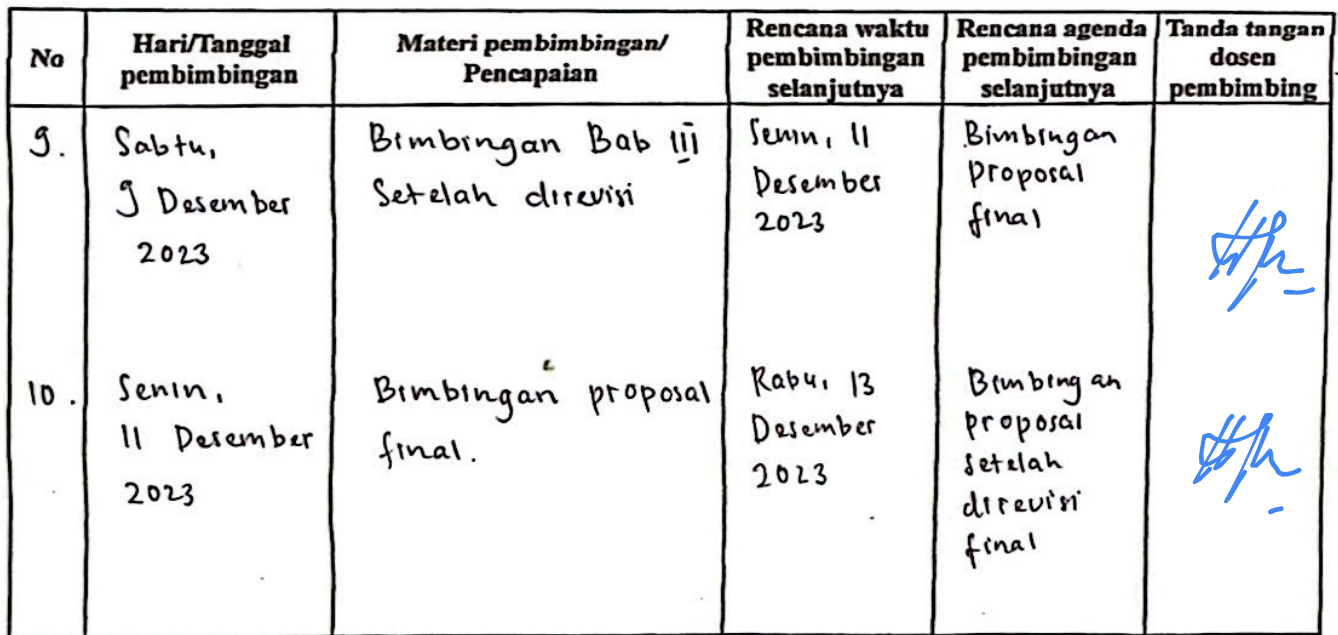 No
Hari/Tanggal
pembimbingan
Materi pembimbingan/
Pencapaian
Rencana waktu
pembimbingan
selanjutnya
Rencana agenda
pembimbingan
selanjutnya
Tanda tangan
dosen
pembimbing
9.
Sabtu,
9 Desember
2023
Bimbingan Bab III
Setelah direvisi
Senin, 11
Desember
2023
Bimbingan
proposal
final
10.
Senin,
11 Desember
2023
Bimbingan proposal
final.
Rabu, 13
Desember
2023
Bimbingan
proposal
setelah
direvisi
final